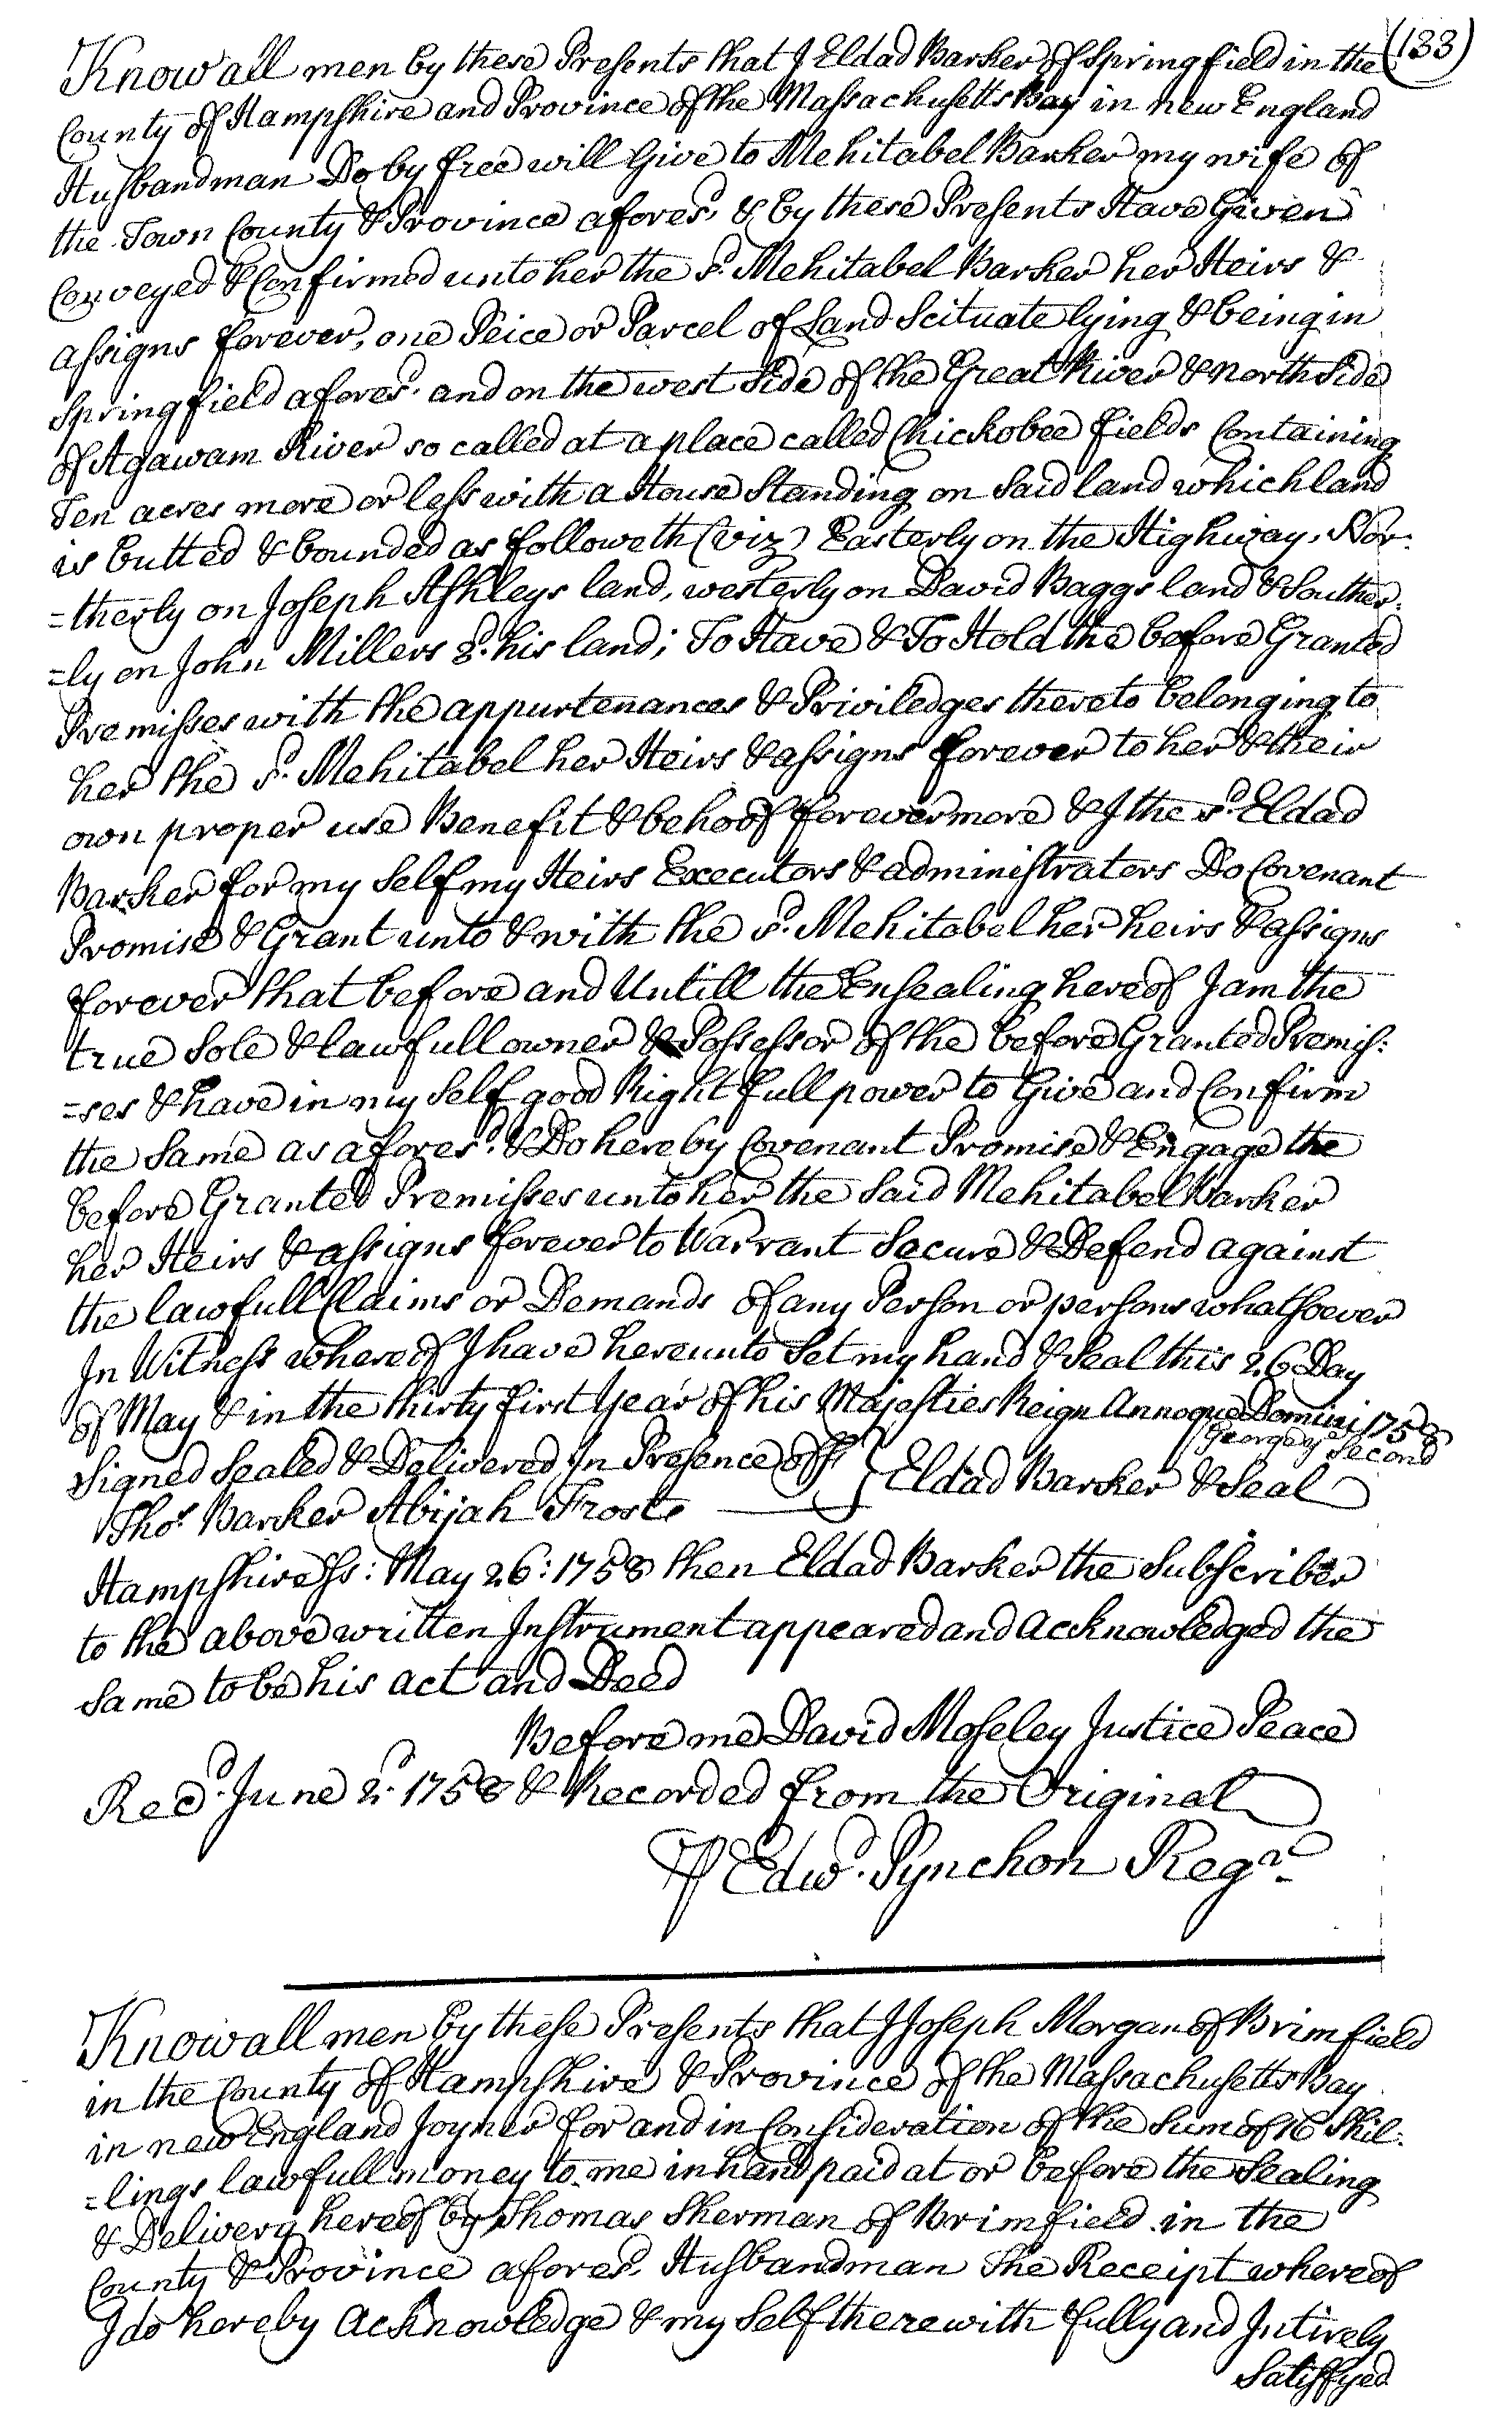 (133)
Know all men by these Presents that I Eldad Barker of Springfield in the
County of Hampshire and Province of the Massachusetts Bay in new England
Husbandman Do by free will Give to Mehitabel Barker my wife of
the Town County & Province afores.d & by these Presents Have Given
Conveyed & Confirmed unto her the s.d Mehitabel Barker her Heirs &
assigns forever, one Peice or Parcel of Land Scituate lying & being in
Springfield afores.d and on the west Side of the Great River & north Side
of Agawam River so called at a place called Chickobee fields Containing
Ten acres more or less with a House Standing on Said land which land
is butted & bounded as followeth (viz) Easterly on the Highway, Nor:
=therly on Joseph Ashleys land, westerly on David Baggs land & Souther:
=ly on John Millers 2.d his land; To Have & To Hold the before Granted
Premisses with the appurtenances & Priviledges thereto belonging to
her the s.d Mehitabel her Heirs & assigns forever to her & their
own proper use Benefit & behoof forevermore & I the s.d Eldad
Barker for my Self my Heirs Executors & administrators Do Covenant
Promise & Grant unto & with the s.d Mehitabel her heirs & assigns
forever that before and Untill the Ensealing hereof I am the
true Sole & lawfull owner & Possessor of the before Granted Premis:
=ses & have in my Self good Right full power to Give and Confirm
the Same as afores.d & Do hereby Covenant Promise & Engage the
before Granted Premisses unto her the Said Mehitabel Barker
her Heirs & assigns forever to Warrant Secure & Defend against
the lawfull Claims or Demands of any Person or persons whatsoever
In Witness whereof I have hereunto Set my hand & Seal this 26 Day
of May & in the thirty first Year of his Majesties Reign Annoque Domini 1758
George y.e Second
Signed Sealed & Delivered In Presence off } Eldad Barker & Seal
Tho.s Barker Abijah Frost
Hampshire Ss: May 26: 1758 then Eldad Barker the Subscriber
to the above written Instrument appeared and Acknowledged the
Same to be his act and Deed
Before me David Moseley Justice Peace
Rec.d June 2.d 1758 & Recorded from the Original
P Edw.d Pynchon Reg.r
Know all men by these Presents that I Joseph Morgan of Brimfield
in the County of Hampshire & Province of the Massachusetts Bay
in new England Joyner for and in Consideration of the Sum of 16 Shil:
=lings lawfull money to me in hand paid at or before the Sealing
& Delivery hereof by Thomas Sherman of Brimfield in the
County & Province afores.d Husbandman The Receipt whereof
I do hereby Acknowledge & my Self therewith fully and Intirely
Satisfyed